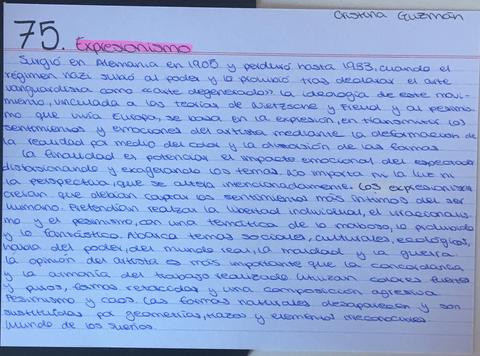 Cristina Guzmán
75. Expresionismo
Surgió en Alemania en 1905 y perduró hasta 1933, cuando el
régimen nazi subió al poder y lo prohibió tras declarar el arte
vanguardista como <<arte degenerado>>. La ideología de este movi-
miento, vinculada a las teorías de Nietzsche y Freud y al pesimis
mo que vivía Europa, se basa en la expresión, en transmitir los
sentimientos y emociones del artista mediante la deformación de
la realidad por medio del color y la distorsión de las formas
La finalidad es potenciar el impacto emocional del espectador
distorsionando y exagerando los temas. No importa ni la luz ni
la perspectiva, que se altera intencionadamente. Los expresionistas
creían que debían captar los sentimientos más íntimos del ser
humano. Pretendían realzar la libertad individual, el irracionalis-
mo y el pesimismo, con una temática de lo morboso, lo prohibido
y lo fantástico. Abarca temas sociales, culturales, ecológicos,
del poder, del mundo real, la maldad y la guerra.
la opinión del artista es más importante que la concordancia
y la armonía del trabajo realizado. Utilizan colores fuertes
y puros, formas retorcidas y una composición agresiva.
Pesimismo y caos. Las formas naturales desaparecen y son
sustituidas por geometrías, trazos y elementos irreconocibles.
Mundo de los sueños.